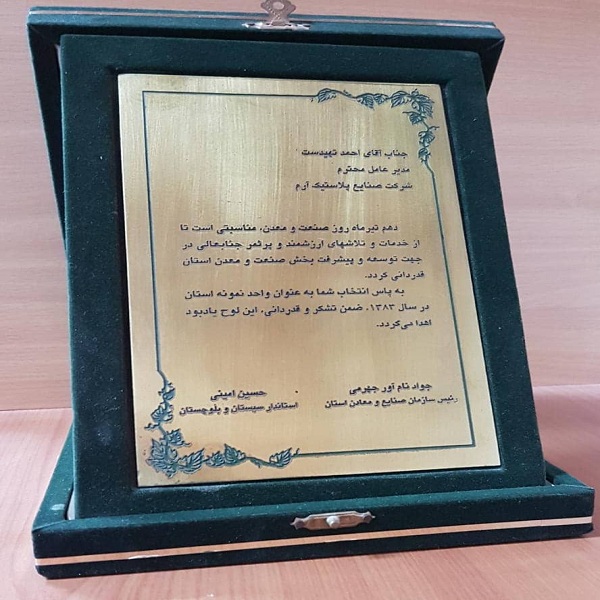 جناب آقای احمد تهیدست
مدیر عامل محترم
شرکت صنایع پلاستیک آرم
دهم تیرماه روز صنعت و معدن، مناسبتی است تا
از خدمات و تلاشهای ارزشمند و پرثمر جنابعالی در
جهت توسعه و پیشرفت بخش صنعت و معدن استان
قدردانی گردد.
به پاس انتخاب شما به عنوان واحد نمونه استان
در سال ۱۳۸۳، ضمن تشکر و قدردانی، این لوح یادبود
اهدا می‌گردد.
جواد نام آور جهرمی
رئیس سازمان صنایع و معادن استان
حسین امینی
استاندار سیستان و بلوچستان